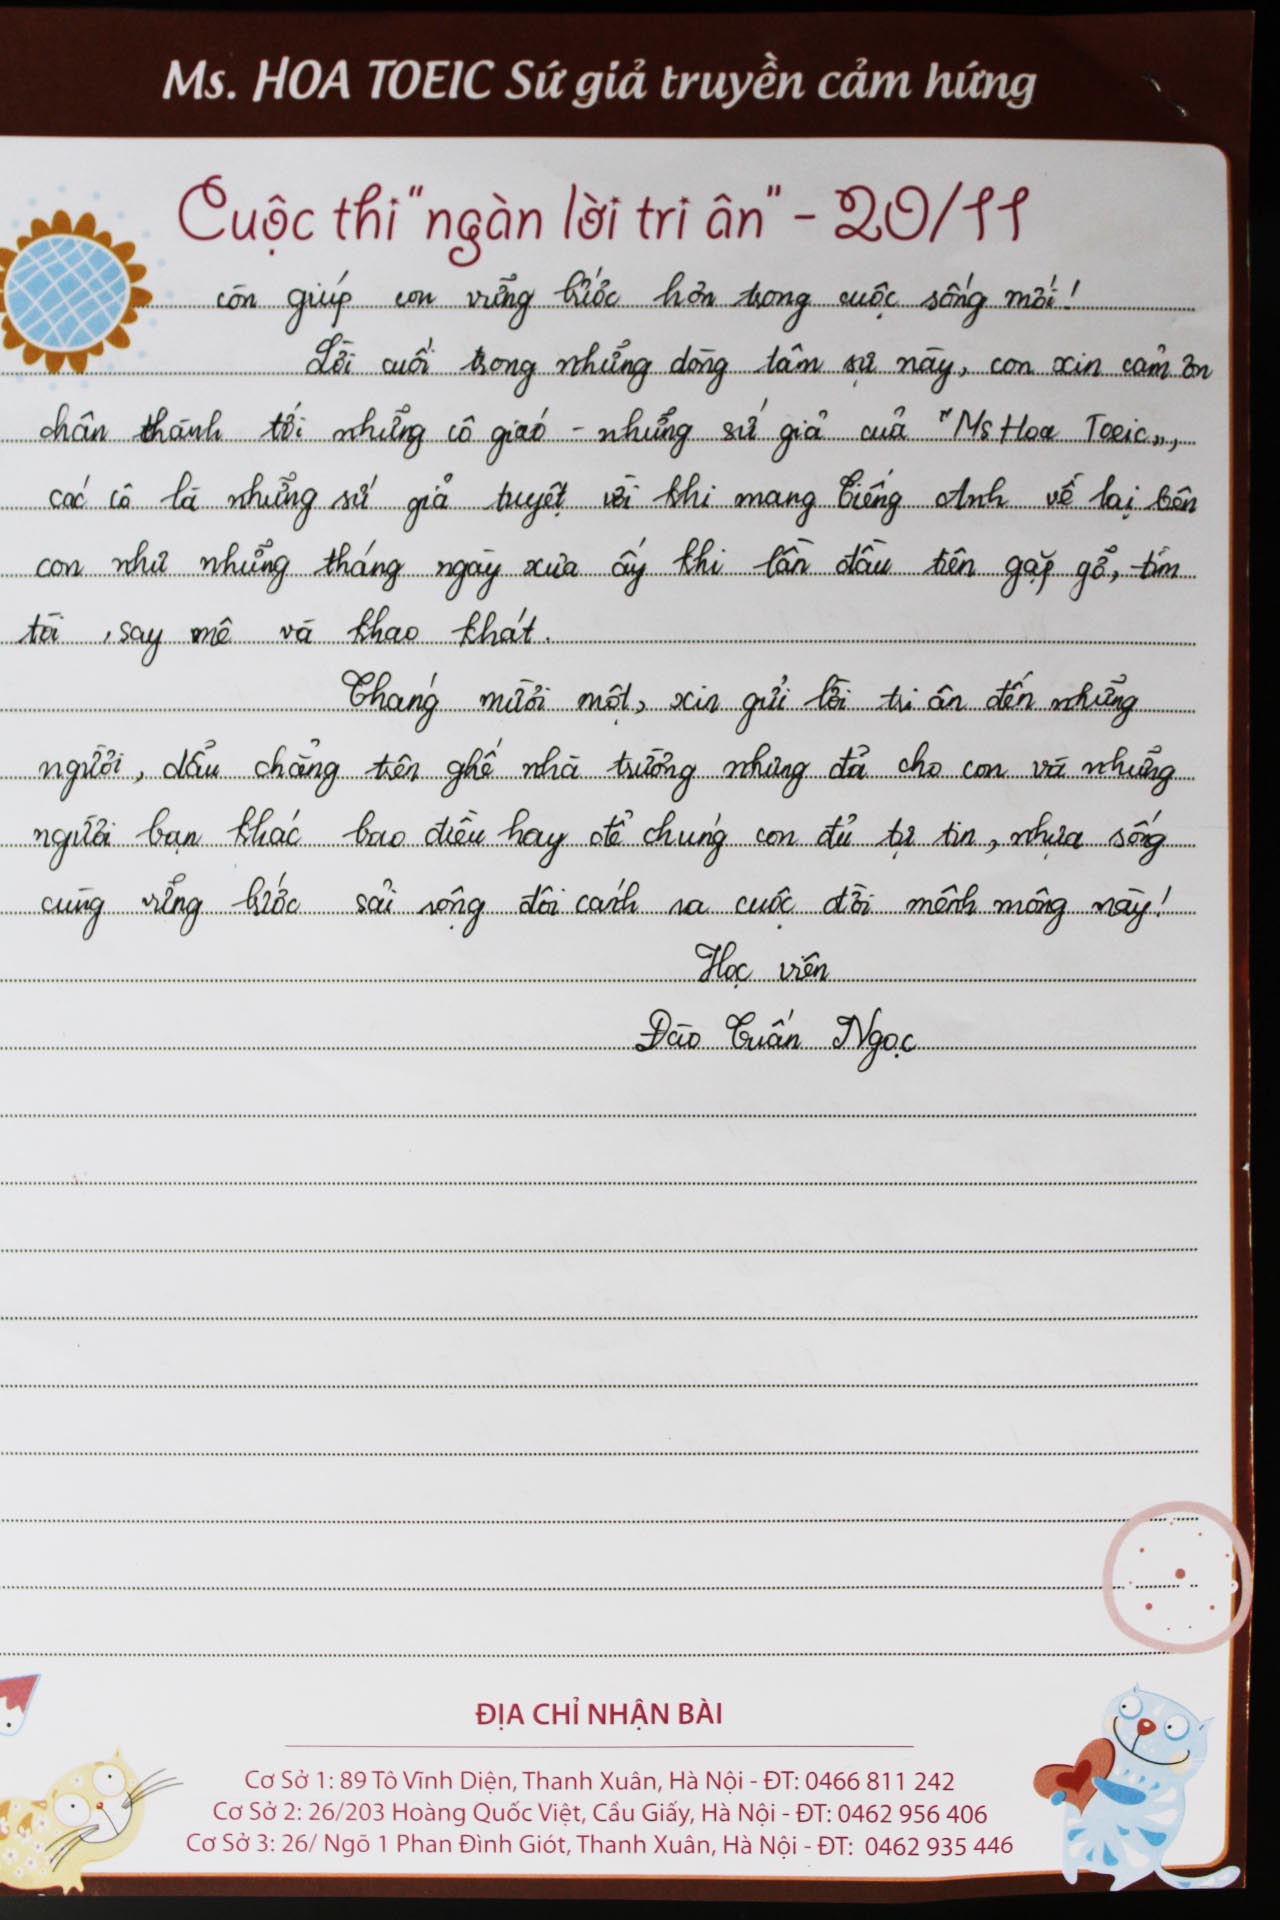 Ms. HOA TOEIC Sứ giả truyền cảm hứng
Cuộc thi "ngàn lời tri ân" - 20/11
còn giúp con vững bước hơn trong cuộc sống mới!
Lời cuối trong những dòng tâm sự này, con xin cảm ơn
chân thành tới những cô giáo - những sứ giả của "Ms Hoa Toeic",
các cô là những sứ giả tuyệt vời khi mang Tiếng Anh về lại bên
con như những tháng ngày xưa ấy khi lần đầu tiên gặp gỡ, tìm
tòi, say mê và khao khát.
Tháng mười một, xin gửi lời tri ân đến những
người, dẩu chẳng trên ghế nhà trường nhưng đã cho con và những
người bạn khác bao điều hay để chúng con đủ tự tin, nhựa sống
cùng vững bước sải rộng đôi cánh ra cuộc đời mênh mông này!
Học viên
Đào Tuấn Ngọc
ĐỊA CHỈ NHẬN BÀI
Cơ Sở 1: 89 Tô Vĩnh Diện, Thanh Xuân, Hà Nội - ĐT: 0466 811 242
Cơ Sở 2: 26/203 Hoàng Quốc Việt, Cầu Giấy, Hà Nội - ĐT: 0462 956 406
Cơ Sở 3: 26/ Ngõ 1 Phan Đình Giót, Thanh Xuân, Hà Nội - ĐT: 0462 935 446